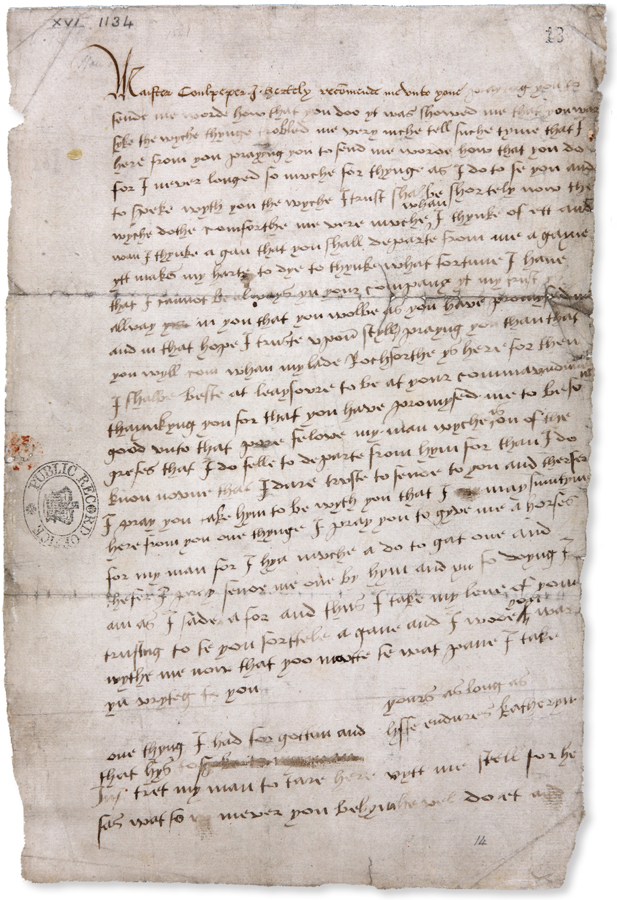 XVI 1134
13
Maister Coulpeper I hertely recomende me unto youe praying you to
sende me worde how that you doo yt was showed me that you was
sike the wyche thynge trobled me very muche tell suche tyme that I
here from you praying you to send me worde how that you do
for I never longed so muche for thynge as I do to se you and
to speke wyth you the wyche I trust shal be shortely now the
wyche dothe comforthe me very muche whan I thynke of ett and
wan I thynke a gan that you shall departe from me agane
ytt makes my harte to dye to thynke what fortune I have
that I cannot be always yn your company yt my trust ys
allway in you that you wolbe as you have promysed me
and in that hope I truste upon styll prayng you than that
you wyll com whan my lade Rochforthe ys here for then
I shalbe beste at leaysoure to be at your commaundmant
thaynkyng you for that you have promysed me to be so
good unto that pore felowe my man wyche ys on of the
grefes that I do felle to departe from hym for than I do
know noone that I dare truste to sende to you and therfor
I pray you take hym to be wyth you that I may sumtym
here from you one thynge I pray you to gyve me a horse
for my man for I hyd muche a do to gat one and
therfer I pray sende me one by hym and yn so doyng I
am as I sade afor and thus I take my leve of you
trusting to se you shorttele agane and I wode you was
wythe me now that yoo maitte se wat pane I take
yn wryteg to you
yours as long as
lyffe endures Katheryn
one thyng I had forgotten and
that hys to
tret my man to tare here wytt me stell for he
sas wat so mever you bed hym he wel do et and
14
PUBLIC RECORD OFFICE